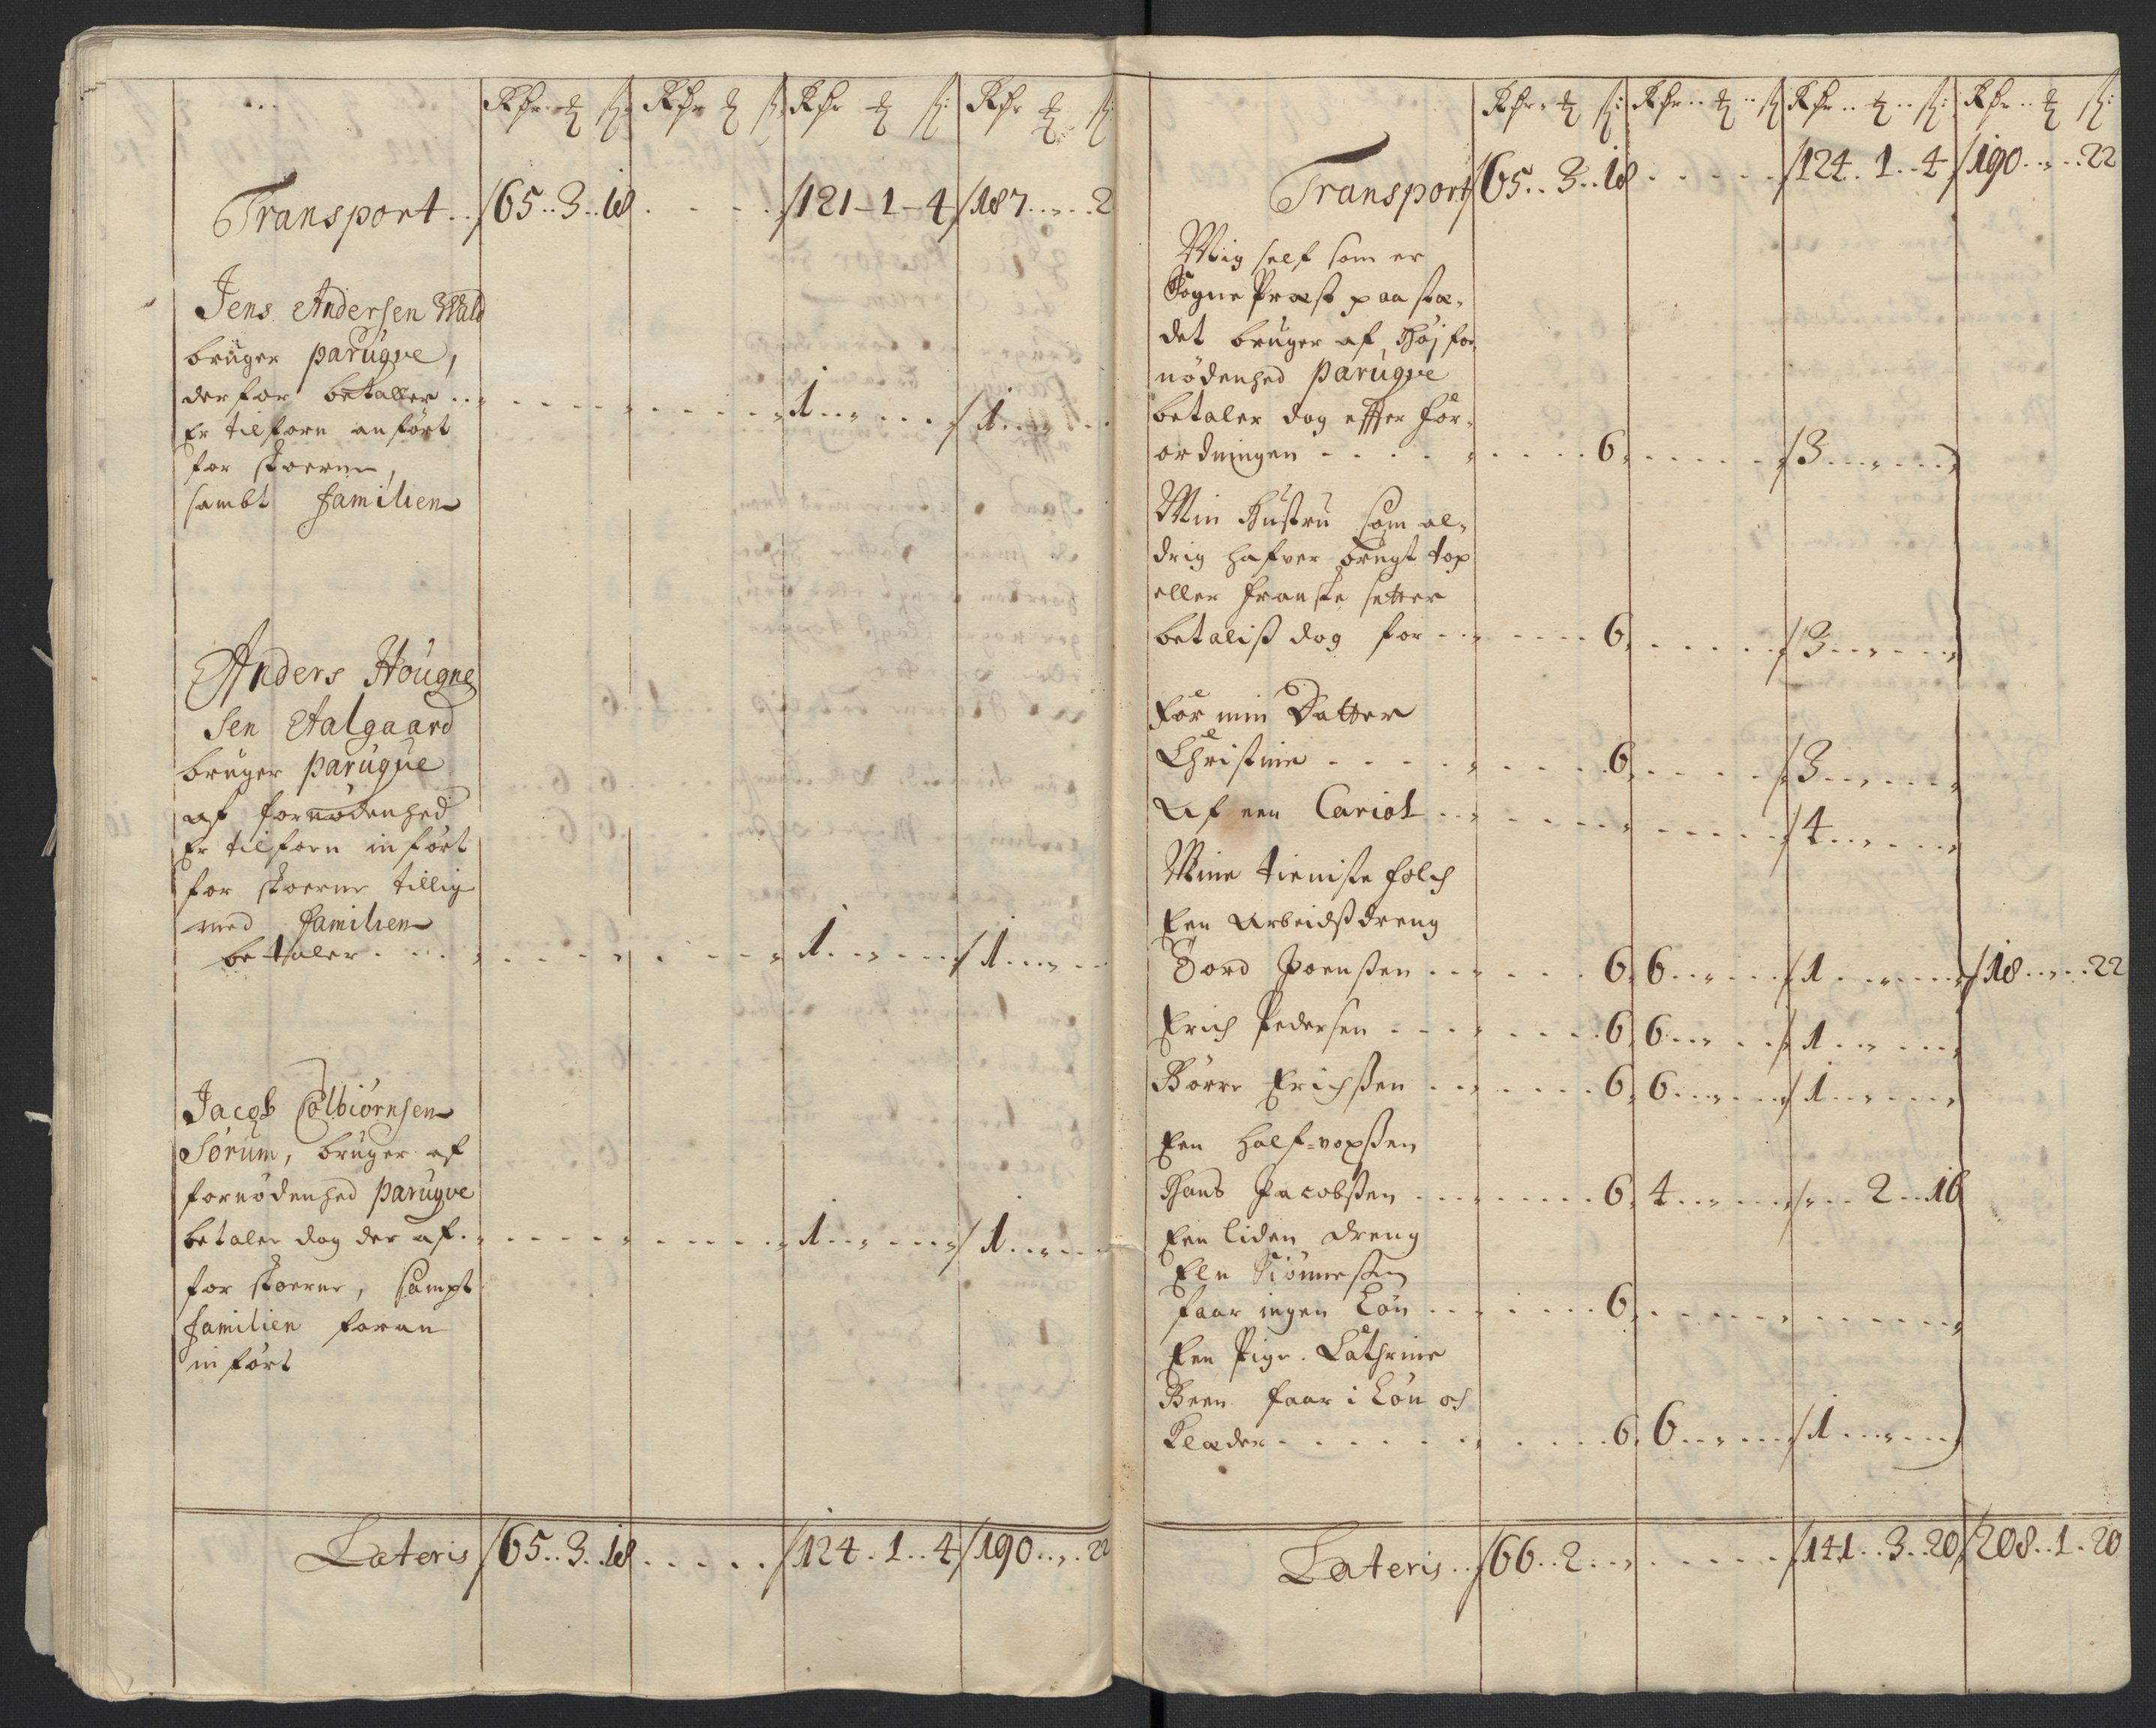 Rdr. ℔ ß: Rdr ℔ ß Rdr ℔ ß: Rdr ℔ ß:
Transport .. /65..3..18 . . . . /121-1-4 /187..,..2
Jens Andersen Wald
bruger parúgve,
derfor betaller .. 1..,... /1..,..
Er tilforn anført
for skoerne,
sambt familien
Anders Hougne
sen Aalgaard
bruger parúgúe
af fornødenhed
Er tilforn inført
for skoerne tillig
med familien
betaler . . . . 1..,... /1..,..
Jacob Colbiørnsen
Sørum, bruger af
fornødenhed parúgve
betaler dog der af . 1..,... /1..,..
for skoerne, sampt
familien foran
inført
Lateris /65..3..18 . . . . . /124..1..4 /190..,..22
Rdr. ℔ ß: Rdr.. ℔ .. ß Rdr.. ℔ .. ß: Rdr.. ℔ ß:
Transport /65..3..18 . . . . . /124..1..4 /190..,..22
Mig self som er
Sogne Præst paa stæ,
det bruger af Høj for,
nødenhed parúgve
betaler dog effter for,
ordningen . . . . 6, . . . . . /3...,...
Min Hustru som al,
drig hafver brugt top
eller franske setter
betaliß dog for . . . . 6, . . . . . /3...,...
for min Datter
Christine . . . . 6, . . . . . /3...,...
Af een Cariol . . . . . /4...,...
Mine tieniste folch
Een Arbeidßdreng
Tord Joenßen . . . . 6, 6..,... /1...,... /18..,..22
Erich Pedersen . . . . 6, 6..,... /1...,...
Børre Erichßen . . . . 6, 6..,... /1...,...
Een half=voxßen
Hans Jacobßen . . . . 6, 4..,... /,...2..16
Een liden dreng
faar ingen Løn . . . . 6, . . . . .
Een Pige. Cathrine
Been faar i Løn och
Klæder . . . . . 6, 6..,... /1...,...
Lateris .. /66..2..,. . . . . /141..3..20 /208..1..20